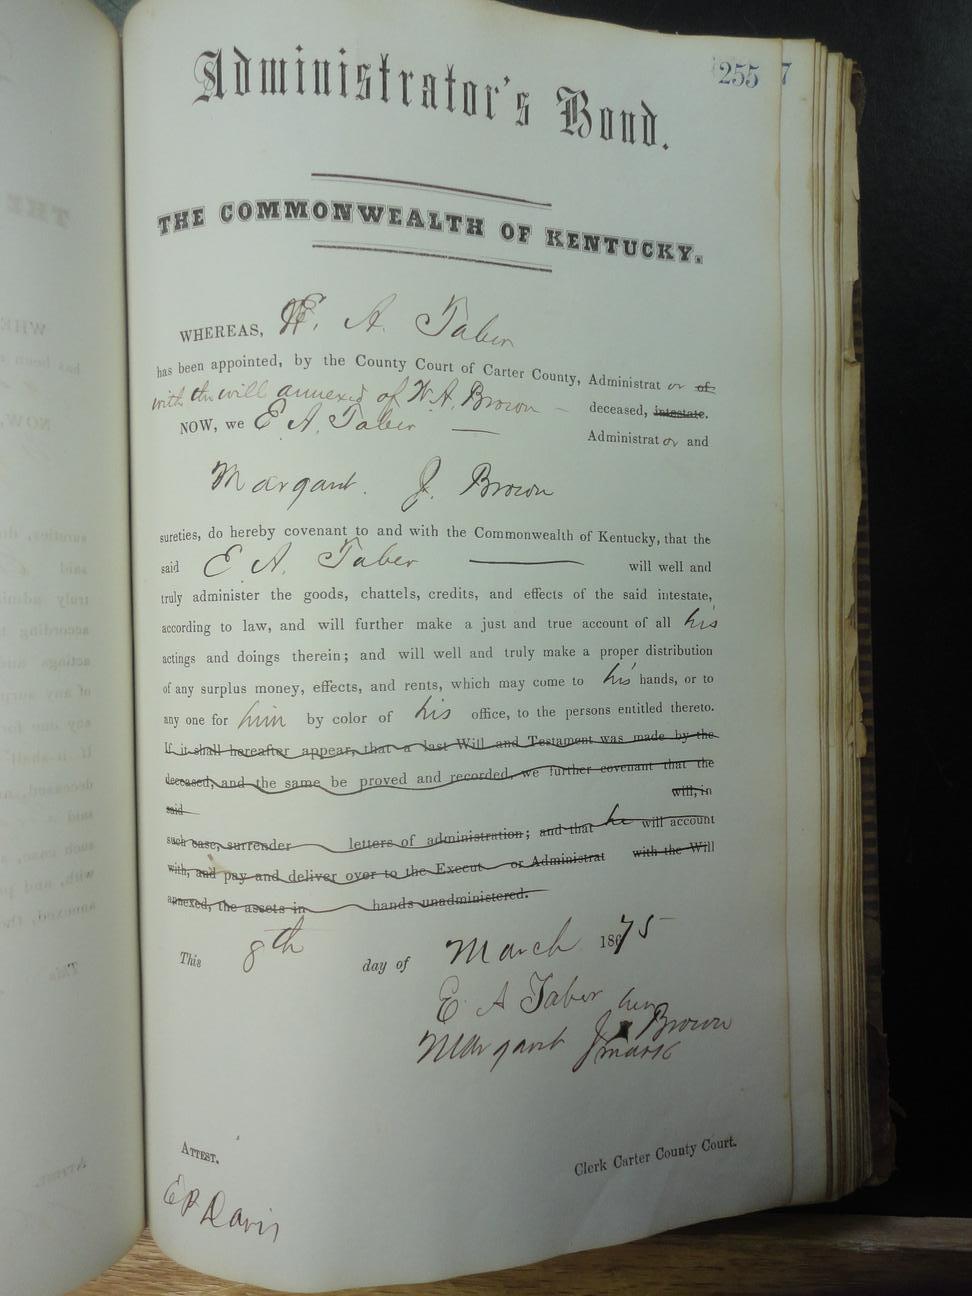 255 7
Administrator's Bond.
THE COMMONWEALTH OF KENTUCKY.
WHEREAS, E. A. Taber
has been appointed, by the County Court of Carter County, Administrator of
with the will annexed of W. A. Brown deceased, intestate.
NOW, we E A. Taber Administrator and
Margaret. J. Brown
sureties, do hereby covenant to and with the Commonwealth of Kentucky, that the
said E A. Taber will well and
truly administer the goods, chattels, credits, and effects of the said intestate,
according to law, and will further make a just and true account of all his
actings and doings therein; and will well and truly make a proper distribution
of any surplus money, effects, and rents, which may come to his hands, or to
any one for him by color of his office, to the persons entitled thereto.
If it shall hereafter appear, that a last Will and Testament was made by the
deceased, and the same be proved and recorded, we further covenant that the
said will, in
such case, surrender letters of administration; and that he will account
with, and pay and deliver over to the Execut or Administrat with the Will
annexed, the assets in hands unadministered.
This 8th day of March 1875
E A Taber her
Margaret J x Brown
mark
ATTEST.
Clerk Carter County Court.
E P Davis